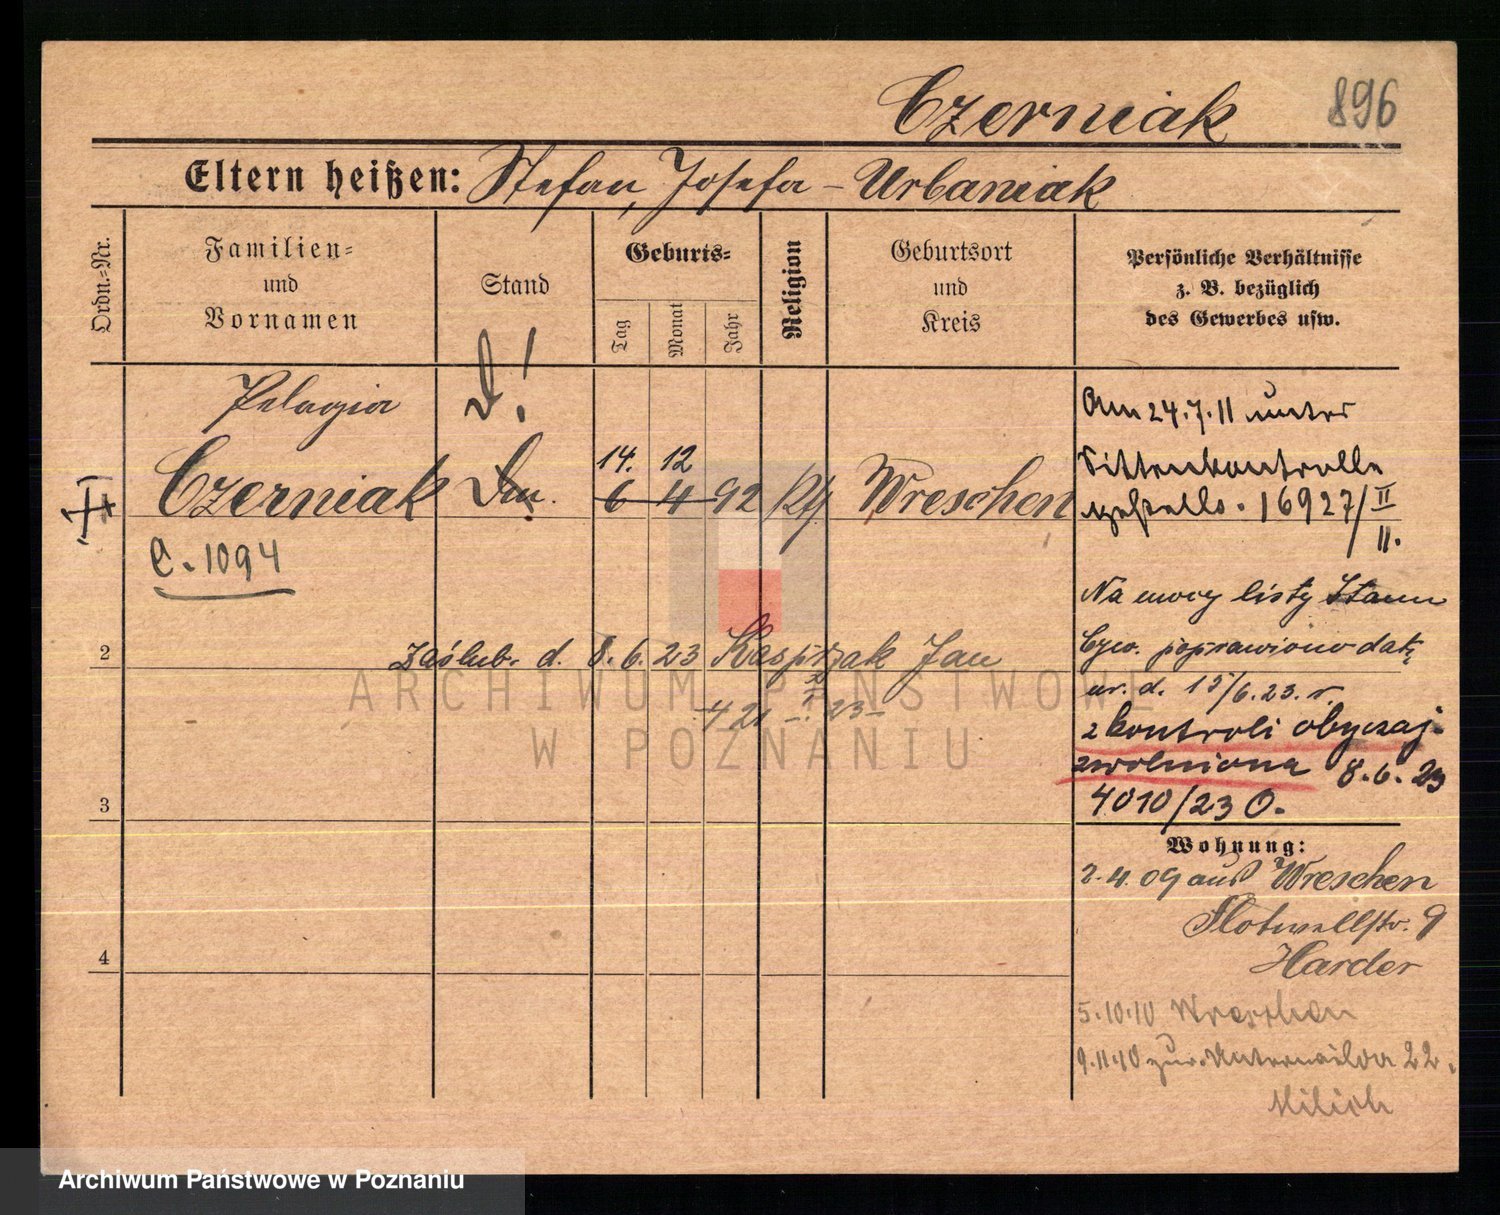 Czerniak 896
Eltern heißen: Stefan, Josefa - Urbaniak
Ordn.-Nr.
Familien-
und
Vornamen
Stand
Geburts-
Tag
Monat
Jahr
Religion
Geburtsort
und
Kreis
Persönliche Verhältnisse
z. B. bezüglich
des Gewerbes usw.
D!
Pelagia
14. 12
Czerniak 6 4 92 Kth Wreschen
C. 1094
Am 24.7.11 unter
Sittenkontrolle
gestellt. 16927/II
II.
Na mocy listy Stanu
Cyw. poprawiono datę
ur. d. 15/6.23. r.
z kontroli obyczaj.
zwolniona 8.6.23
4010/23 O.
2
Zaślub. d. 8.6.23 Kasprzak Jan
421 23
3
Wohnung:
2.4.09 aus Wreschen
Flotwellstr. 9
Harder
4
5.10.10 Wreschen
9.11.10 zur. 22.
Milich
ARCHIWUM PAŃSTWOWE
W POZNANIU
Archiwum Państwowe w Poznaniu